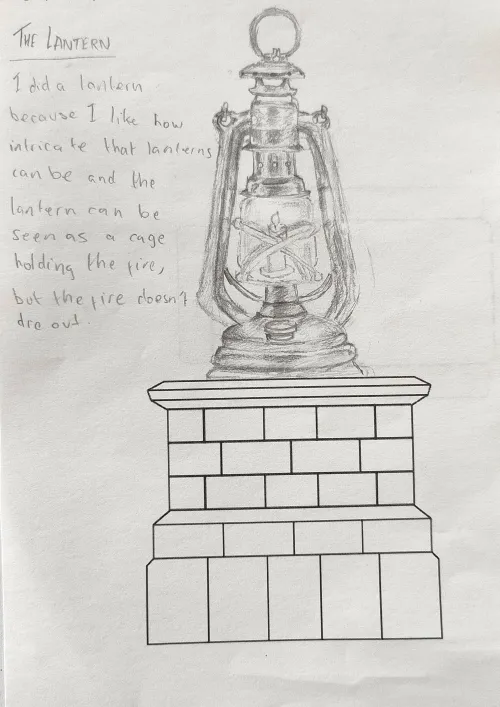 THE LANTERN
I did a lantern
because I like how
intricate that lanterns
can be and the
lantern can be
seen as a cage
holding the fire,
but the fire doesn't
die out.